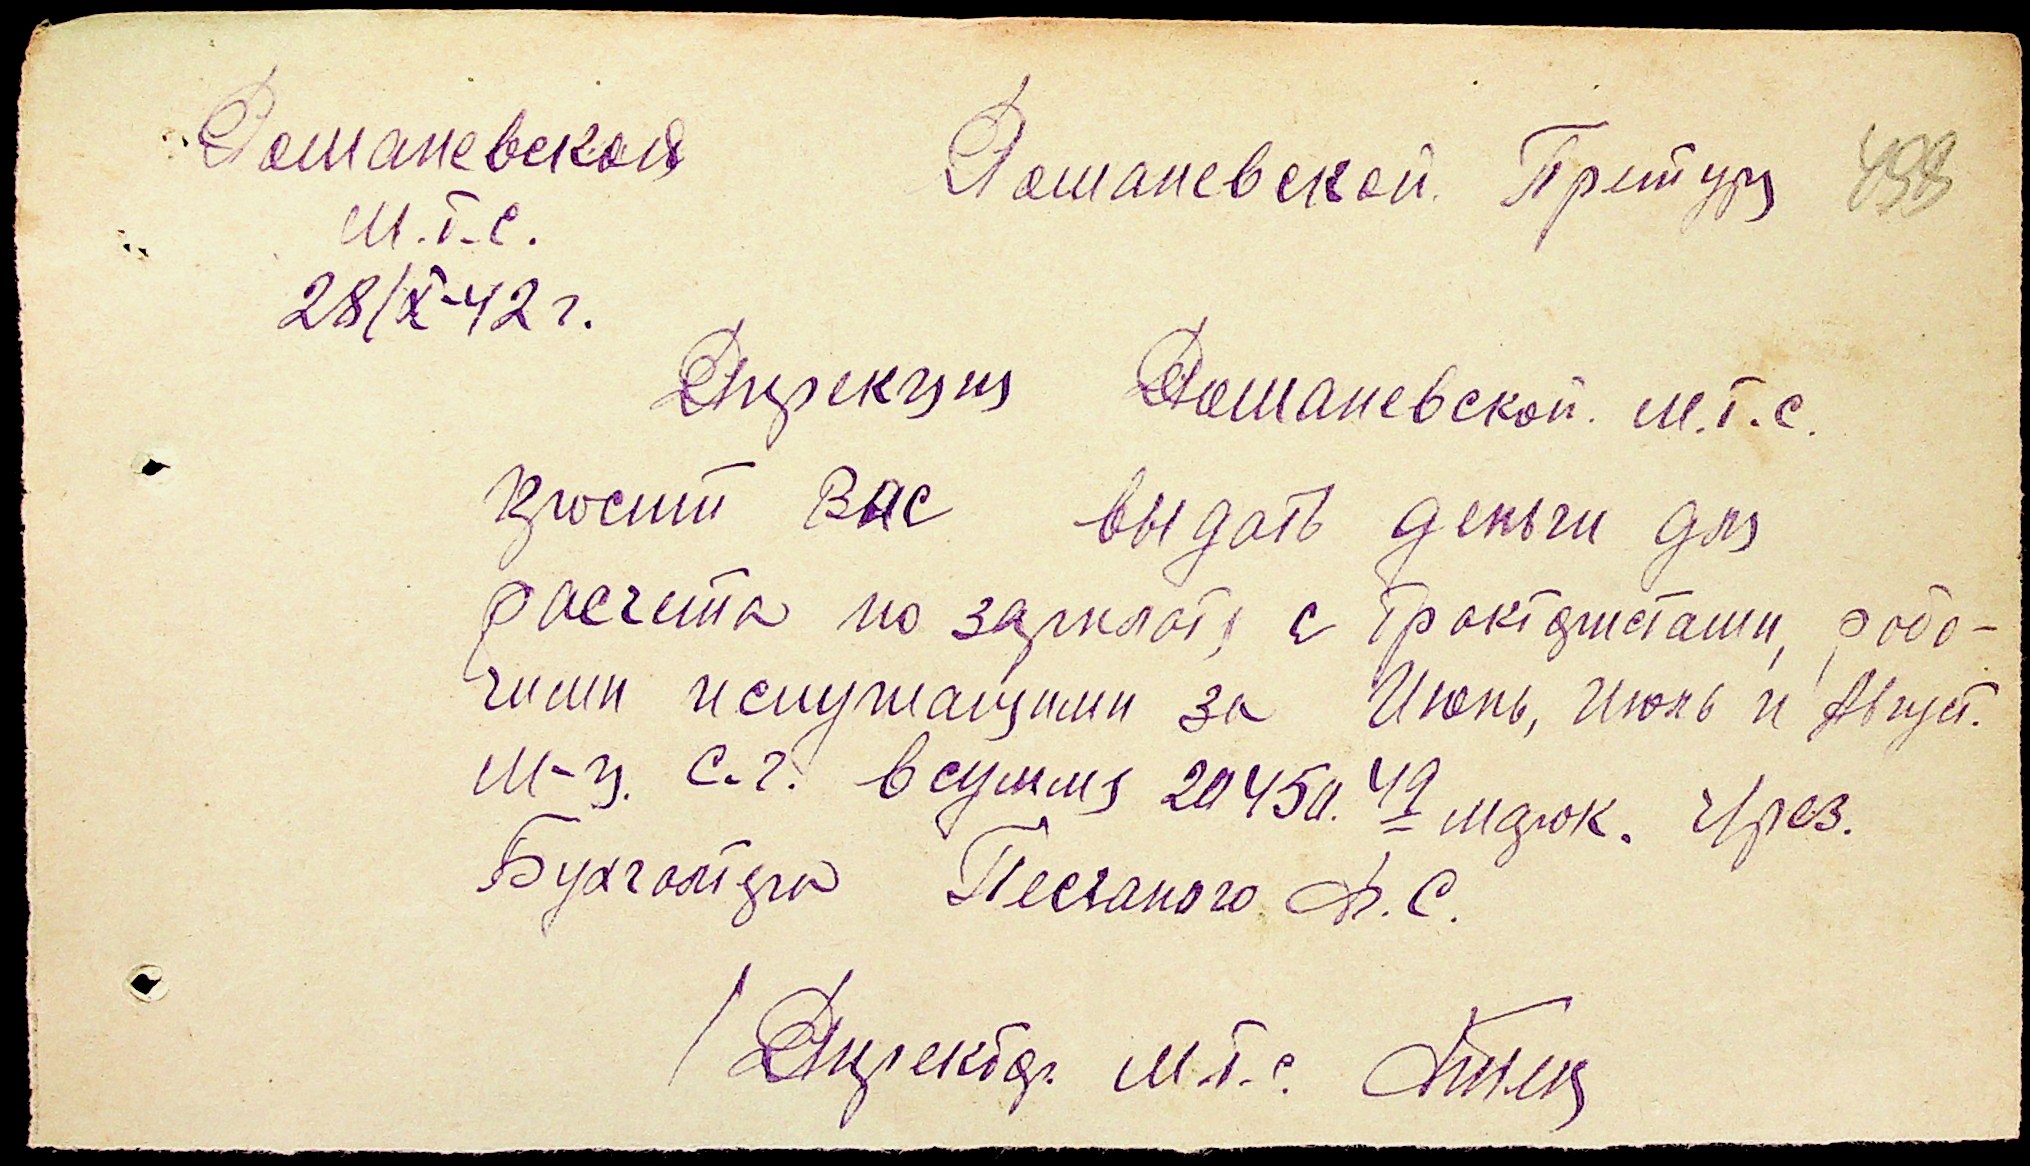 Доманевской
М.Т.С.
28/X-42 г.
Доманевской Претуры
498
Дирекция Доманевской М.Т.С.
просит Вас выдать деньги для
расчета по зарплаты с Трактористами, рабо-
чими и служащими за Июнь, Июль и Август.
м-ц. с.г. в сумме 20450.49 марок. через.
Бухгалтера Песчаного А.С.
/ Директор М.Т.С.